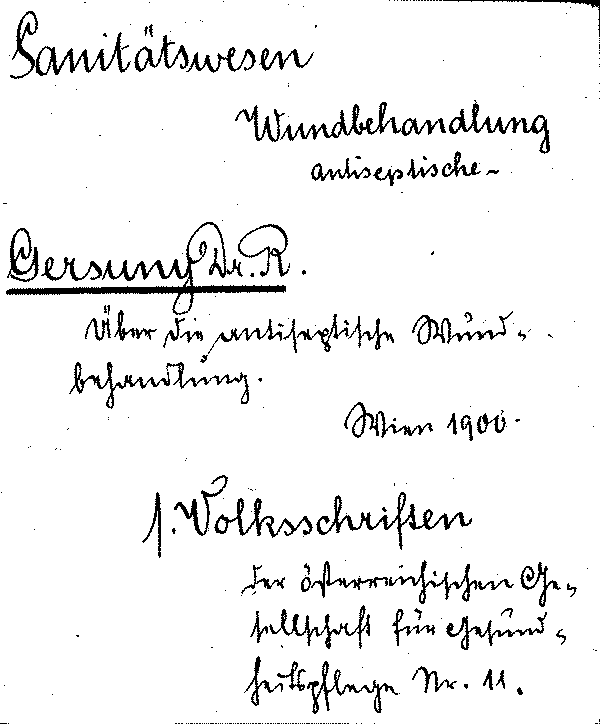 Sanitätswesen
Wundbehandlung
antiseptische -
Gersuny Dr. R.
Über die antiseptische Wund-
behandlung.
Wien 1900.
s. Volksschriften
der österreichischen Ge-
sellschaft für Gesund-
heitspflege Nr. 11.